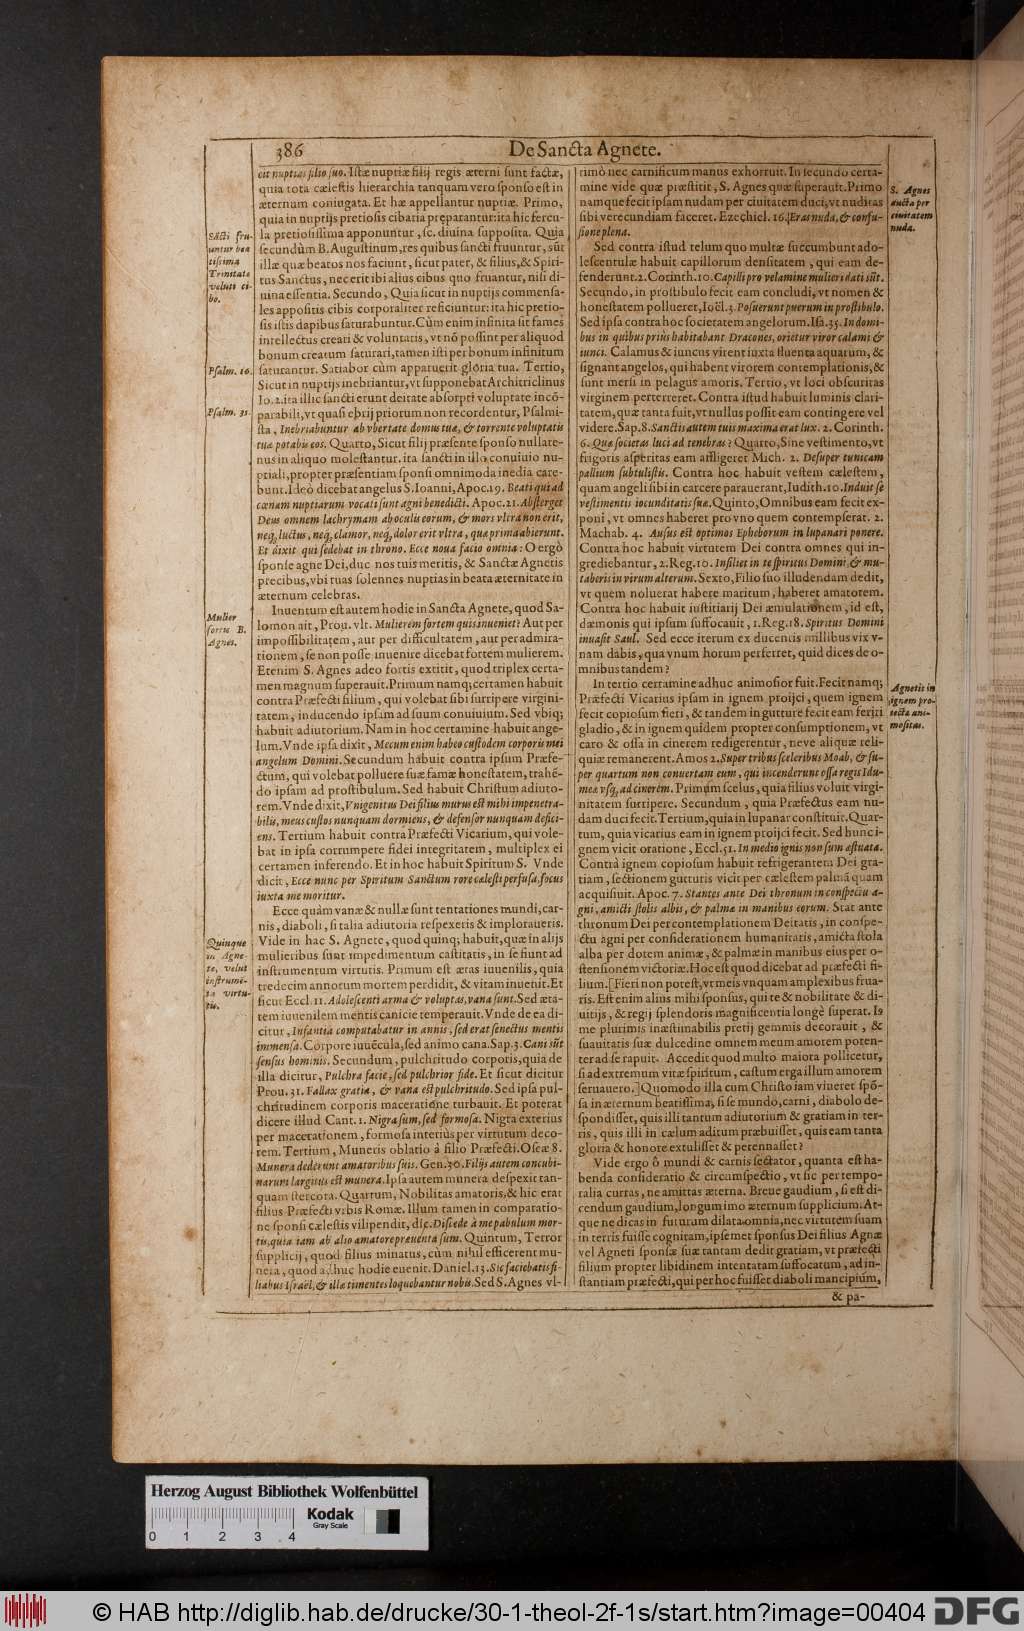 386
De Sancta Agnete.
cit nuptias filio suo. Istæ nuptiæ filij regis æterni sunt factæ,
quia tota cælestis hierarchia tanquam vero sponso est in
æternum coniugata. Et hæ appellantur nuptiæ. Primo,
quia in nuptijs pretiosis cibaria præparantur: ita hic fercu-
la pretiosissima apponuntur, sc. diuina supposita. Quia
secundùm B. Augustinum, res quibus sancti fruuntur, sūt
illæ quæ beatos nos faciunt, sicut pater, & filius, & Spiri-
tus Sanctus, nec erit ibi alius cibus quo fruantur, nisi di-
uina essentia. Secundo, Quia sicut in nuptijs commensa-
les appositis cibis corporaliter reficiuntur: ita hic pretio-
sis istis dapibus saturabuntur. Cùm enim infinita sit fames
intellectus creati & voluntatis, vt nō possint per aliquod
bonum creatum saturari, tamen isti per bonum infinitum
saturantur. Satiabor cùm apparuerit gloria tua. Tertio,
Sicut in nuptijs inebriantur, vt supponebat Architriclinus
Io. 2. ita illic sancti erunt deitate absorpti voluptate incō-
parabili, vt quasi ebrij priorum non recordentur, Psalmi-
sta, Inebriabuntur ab vbertate domus tuæ, & torrente voluptatis
tuæ potabis eos. Quarto, Sicut filij præsente sponso nullate-
nus in aliquo molestantur. ita sancti in illo conuiuio nu-
ptiali, propter præsentiam sponsi omnimoda inedia care-
bunt. Ideò dicebat angelus S. Ioanni, Apoc. 19. Beati qui ad
cœnam nuptiarum vocati sunt agni benedicti. Apoc. 21. Absterget
Deus omnem lachrymam ab oculis eorum, & mors vltra non erit,
neq; luctus, neq; clamor, neq; dolor erit vltra, quæ prima abierunt.
Et dixit qui sedebat in throno. Ecce noua facio omnia: O ergò
sponse agne Dei, duc nos tuis meritis, & Sanctæ Agnetis
precibus, vbi tuas solennes nuptias in beata æternitate in
æternum celebras.
Inuentum est autem hodie in Sancta Agnete, quod Sa-
lomon ait, Prou. vlt. Mulierem fortem quis inueniet? Aut per
impossibilitatem, aut per difficultatem, aut per admira-
tionem, se non posse inuenire dicebat fortem mulierem.
Etenim S. Agnes adeo fortis extitit, quod triplex certa-
men magnum superauit. Primum namq; certamen habuit
contra Præfecti filium, qui volebat sibi surripere virgini-
tatem, inducendo ipsam ad suum conuiuium. Sed vbiq;
habuit adiutorium. Nam in hoc certamine habuit ange-
lum. Vnde ipsa dixit, Mecum enim habeo custodem corporis mei
angelum Domini. Secundum habuit contra ipsum Præfe-
ctum, qui volebat polluere suæ famæ honestatem, trahē-
do ipsam ad prostibulum. Sed habuit Christum adiuto-
rem. Vnde dixit, Vnigenitus Dei filius murus est mihi impenetra-
bilis, meus custos nunquam dormiens, & defensor nunquam defici-
ens. Tertium habuit contra Præfecti Vicarium, qui vole-
bat in ipsa corrumpere fidei integritatem, multiplex ei
certamen inferendo. Et in hoc habuit Spiritum S. Vnde
dicit, Ecce nunc per Spiritum Sanctum rore cælesti perfusa, focus
iuxta me moritur.
Ecce quàm vanæ & nullæ sunt tentationes mundi, car-
nis, diaboli, si talia adiutoria respexeris & imploraueris.
Vide in hac S. Agnete, quod quinq; habuit, quæ in alijs
mulieribus sunt impedimentum castitatis, in se fiunt ad
instrumentum virtutis. Primum est ætas iuuenilis, quia
tredecim annorum mortem perdidit, & vitam inuenit. Et
sicut Eccl. 11. Adolescenti arma & voluptas, vana sunt. Sed æta-
tem iuuenilem mentis canicie temperauit. Vnde de ea di-
citur, Infantia computabatur in annis, sed erat senectus mentis
immensa. Corpore iuuēcula, sed animo cana. Sap. 3. Cani sūt
sensus hominis. Secundum, pulchritudo corporis, quia de
illa dicitur, Pulchra facie, sed pulchrior fide. Et sicut dicitur
Prou. 31. Fallax gratia, & vana est pulchritudo. Sed ipsa pul-
chritudinem corporis maceratione turbauit. Et poterat
dicere illud Cant. 1. Nigra sum, sed formosa. Nigra exterius
per macerationem, formosa interius per virtutum deco-
rem. Tertium, Muneris oblatio à filio Præfecti. Oseæ 8.
Munera dederunt amatoribus suis. Gen. 30. Filijs autem concubi-
narum largitus est munera. Ipsa autem munera despexit tan-
quam stercora. Quartum, Nobilitas amatoris, & hic erat
filius Præfecti vrbis Romæ. Illum tamen in comparatio-
ne sponsi cælestis vilipendit, dic. Discede à me pabulum mor-
tis, quia iam ab alio amatore præuenta sum. Quintum, Terror
supplicij, quod filius minatus, cùm nihil efficerent mu-
nera, quod adhuc hodie euenit. Daniel. 13. Sic faciebatis fi-
liabus Israël, & illæ timentes loquebantur nobis. Sed S. Agnes vl-
Sācti fru-
untur bea
tissima
Trinitate
veluti ci-
bo.
Psalm. 16.
Psalm. 35.
Mulier
fortis B.
Agnes.
Quinque
in Agne-
te, velut
instrumē-
ta virtu-
tis.
timò nec carnificum manus exhorruit. In secundo certa-
mine vide quæ præstitit, S. Agnes quæ superauit. Primo
namque fecit ipsam nudam per ciuitatem duci, vt nuditas
sibi verecundiam faceret. Ezechiel. 16. Eras nuda, & confu-
sione plena.
Sed contra istud telum quo multæ succumbunt ado-
lescentulæ habuit capillorum densitatem, qui eam de-
fenderunt. 2. Corinth. 10. Capilli pro velamine mulieri dati sūt.
Secundo, in prostibulo fecit eam concludi, vt nomen &
honestatem pollueret, Ioël. 3. Posuerunt puerum in prostibulo.
Sed ipsa contra hoc societatem angelorum. Isa. 35. In domi-
bus in quibus priùs habitabant Dracones, orietur viror calami &
iunci. Calamus & iuncus virent iuxta fluenta aquarum, &
signant angelos, qui habent virorem contemplationis, &
sunt mersi in pelagus amoris. Tertio, vt loci obscuritas
virginem perterreret. Contra istud habuit luminis clari-
tatem, quæ tanta fuit, vt nullus possit eam contingere vel
videre. Sap. 8. Sanctis autem tuis maxima erat lux. 2. Corinth.
6. Quæ societas luci ad tenebras? Quarto, Sine vestimento, vt
frigoris asperitas eam affligeret Mich. 2. Desuper tunicam
pallium subtulistis. Contra hoc habuit vestem cælestem,
quam angeli sibi in carcere parauerant, Iudith. 10. Induit se
vestimentis iocunditatis suæ. Quinto, Omnibus eam fecit ex-
poni, vt omnes haberet pro vno quem contempserat. 2.
Machab. 4. Ausus est optimos Epheborum in lupanari ponere.
Contra hoc habuit virtutem Dei contra omnes qui in-
grediebantur, 2. Reg. 10. Insiliet in te spiritus Domini, & mu-
taberis in virum alterum. Sexto, Filio suo illudendam dedit,
vt quem noluerat habere maritum, haberet amatorem.
Contra hoc habuit iustitiarij Dei æmulationem, id est,
dæmonis qui ipsum suffocauit, 1. Reg. 18. Spiritus Domini
inuasit Saul. Sed ecce iterum ex ducentis millibus vix v-
nam dabis, qua vnum horum perferret, quid dices de o-
mnibus tandem?
In tertio certamine adhuc animosior fuit. Fecit namq;
Præfecti Vicarius ipsam in ignem proijci, quem ignem
fecit copiosum fieri, & tandem in gutture fecit eam feriri
gladio, & in ignem quidem propter consumptionem, vt
caro & ossa in cinerem redigerentur, neve aliquæ reli-
quiæ remanerent. Amos 2. Super tribus sceleribus Moab, & su-
per quartum non conuertam eum, qui incenderunt ossa regis Idu-
meæ vsq; ad cinerem. Primum scelus, quia filius voluit virgi-
nitatem surripere. Secundum, quia Præfectus eam nu-
dam duci fecit. Tertium, quia in lupanar constituit. Quar-
tum, quia vicarius eam in ignem proijci fecit. Sed hunc i-
gnem vicit oratione, Eccl. 51. In medio ignis non sum æstuata.
Contra ignem copiosum habuit refrigerantem Dei gra-
tiam, sectionem gutturis vicit per cælestem palmā quam
acquisiuit. Apoc. 7. Stantes ante Dei thronum in conspectu a-
gni, amicti stolis albis, & palmæ in manibus eorum. Stat ante
thronum Dei per contemplationem Deitatis, in conspe-
ctu agni per considerationem humanitatis, amicta stola
alba per dotem animæ, & palmæ in manibus eius per o-
stensionem victoriæ. Hoc est quod dicebat ad præfecti fi-
lium. [Fieri non potest, vt meis vnquam amplexibus frua-
ris. Est enim alius mihi sponsus, qui te & nobilitate & di-
uitijs, & regij splendoris magnificentia longè superat. Is
me plurimis inæstimabilis pretij gemmis decorauit, &
suauitatis suæ dulcedine omnem meum amorem poten-
ter ad se rapuit. Accedit quod multo maiora pollicetur,
si ad extremum vitæ spiritum, castum erga illum amorem
seruauero.] Quomodo illa cum Christo iam viueret spō-
sa in æternum beatissima, si se mundo, carni, diabolo de-
spondisset, quis illi tantum adiutorium & gratiam in ter-
ris, quis illi in cælum aditum præbuisset, quis eam tanta
gloria & honore extulisset & perennasset?
Vide ergo ô mundi & carnis sectator, quanta est ha-
benda consideratio & circumspectio, vt sic per tempo-
ralia curras, ne amittas æterna. Breue gaudium, si est di-
cendum gaudium, longum imo æternum supplicium. At-
que ne dicas in futurum dilata omnia, nec virtutem suam
in terris fuisse cognitam, ipsemet sponsus Dei filius Agnæ
vel Agneti sponsæ suæ tantam dedit gratiam, vt præfecti
filium propter libidinem intentatam suffocatum, ad in-
stantiam præfecti, qui per hoc fuisset diaboli mancipium,
& pa-
S. Agnes
ducta per
ciuitatem
nuda.
Agnetis in
ignem pro-
iectæ ani-
mositas.
Herzog August Bibliothek Wolfenbüttel
0 1 2 3 4
Kodak
Gray Scale
© HAB http://diglib.hab.de/drucke/30-1-theol-2f-1s/start.htm?image=00404
DFG